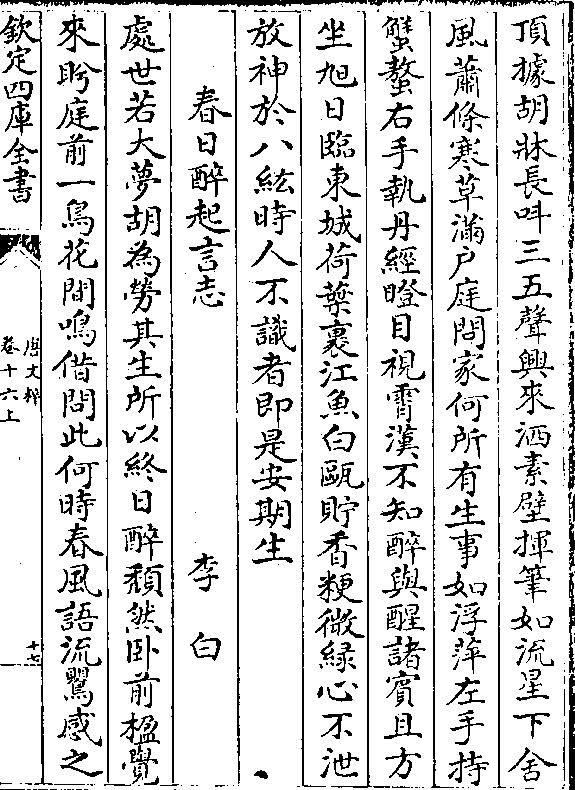 頂據胡牀長呌三五聲興來洒素壁揮筆如流星下舍
風蕭條寒草滿戶庭問家何所有生事如浮萍左手持
蟹螯右手執丹經瞪目視霄漢不知醉與醒諸賓且方
坐旭日臨東城荷葉裹江魚白甌貯香粳微緑心不泄
放神於八紘時人不識者即是安期生
春日醉起言志 李白
處世若大夢胡為勞其生所以終日醉頽然卧前楹覺
來眄庭前一鳥花間鳴借問此何時春風語流鸎感之
欽定四庫全書
唐文粹
卷十六上
十七